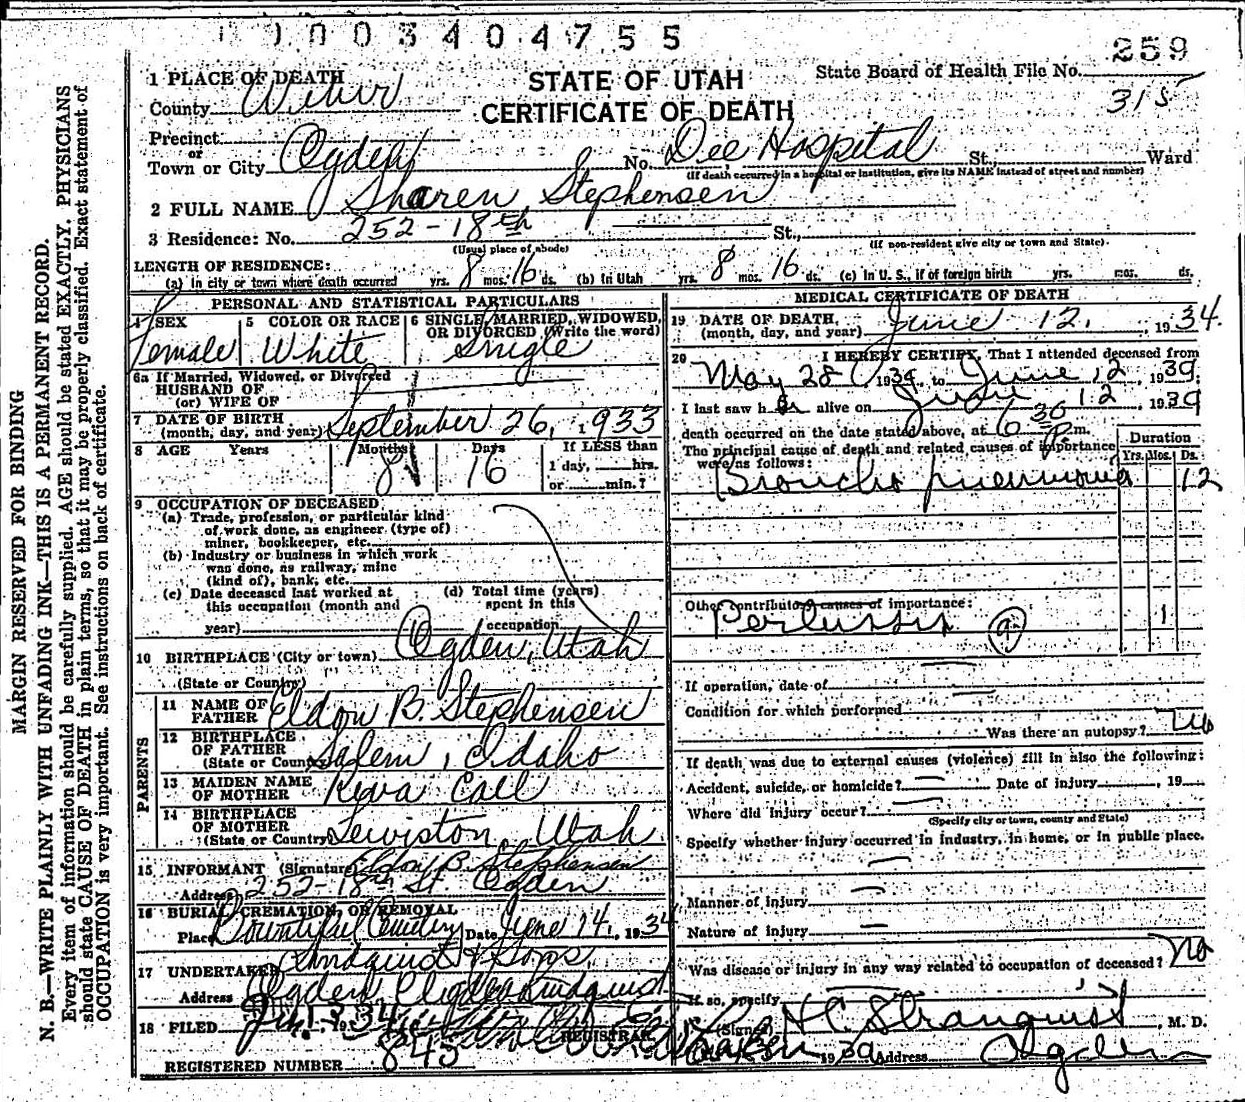 0003404755
259
1 PLACE OF DEATH
STATE OF UTAH
State Board of Health File No.
County Weber
CERTIFICATE OF DEATH
315
Precinct
or
Town or City Ogden No. Dee Hospital St., Ward
(If death occurred in a hospital or institution, give its NAME instead of street and number)
2 FULL NAME Sharen Stephensen
3 Residence: No. 252-18th St.,
(Usual place of abode) (If non-resident give city or town and State)
LENGTH OF RESIDENCE:
(a) In city or town where death occurred yrs. 8 mos. 16 ds. (b) In Utah yrs. 8 mos. 16 ds. (c) In U. S., if of foreign birth yrs. mos. ds.
PERSONAL AND STATISTICAL PARTICULARS
4 SEX 5 COLOR OR RACE 6 SINGLE, MARRIED, WIDOWED, OR DIVORCED (Write the word)
Female White Single
6a If Married, Widowed, or Divorced
HUSBAND OF
(or) WIFE OF
7 DATE OF BIRTH
(month, day, and year) September 26, 1933
8 AGE Years Months Days If LESS than
8 16 1 day, hrs.
or min.?
9 OCCUPATION OF DECEASED
(a) Trade, profession, or particular kind
of work done, as engineer (type of)
miner, bookkeeper, etc.
(b) Industry or business in which work
was done, as railway, mine
(kind of), bank, etc.
(c) Date deceased last worked at (d) Total time (years)
this occupation (month and spent in this
year) occupation
10 BIRTHPLACE (City or town) Ogden, Utah
(State or Country)
PARENTS
11 NAME OF
FATHER Eldon B. Stephensen
12 BIRTHPLACE
OF FATHER
(State or Country) Salem, Idaho
13 MAIDEN NAME
OF MOTHER Reva Call
14 BIRTHPLACE
OF MOTHER
(State or Country) Lewiston, Utah
15 INFORMANT (Signature) Eldon B. Stephensen
Address 252-18th St Ogden
16 BURIAL, CREMATION, OR REMOVAL
Place Bountiful Cemetery Date June 14, 1934
17 UNDERTAKER Lindquist & Sons
Address Ogden Lindquist
18 FILED 1934
REGISTRAR
REGISTERED NUMBER 845
MEDICAL CERTIFICATE OF DEATH
19 DATE OF DEATH
(month, day, and year) June 12, 1934.
20 I HEREBY CERTIFY, That I attended deceased from
May 28 1934, to June 12, 1934
I last saw her alive on June 12 1934
death occurred on the date stated above, at 6:30 P. m.
The principal cause of death and related causes of importance
were as follows:
Duration
Yrs. Mos. Ds.
Broncho pneumonia 12
Other contributory causes of importance:
Pertussis 1
If operation, date of
Condition for which performed
Was there an autopsy? No
If death was due to external causes (violence) fill in also the following:
Accident, suicide, or homicide? Date of injury, 19
Where did injury occur?
(Specify city or town, county and State)
Specify whether injury occurred in industry, in home, or in public place.
Manner of injury
Nature of injury
Was disease or injury in any way related to occupation of deceased? No
If so, specify
(Signed) H.C. Stranquist, M. D.
Address Ogden
MARGIN RESERVED FOR BINDING
N. B.—WRITE PLAINLY WITH UNFADING INK—THIS IS A PERMANENT RECORD.
Every item of information should be carefully supplied. AGE should be stated EXACTLY. PHYSICIANS
should state CAUSE OF DEATH in plain terms, so that it may be properly classified. Exact statement of
OCCUPATION is very important. See instructions on back of certificate.